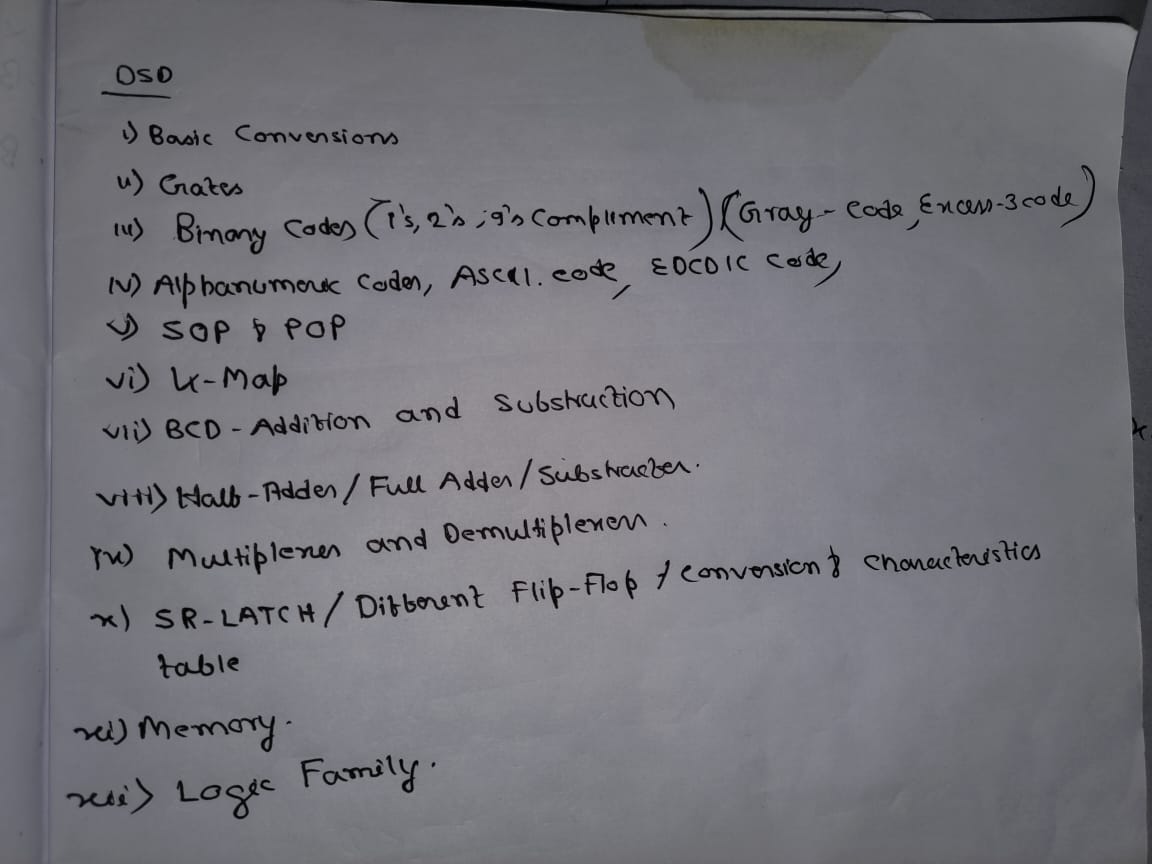 DSD
i) Basic Conversions
ii) Gates
iii) Binary Codes (1's, 2's, 9's Compliment) (Gray-code, Excess-3 code)
iv) Alphanumeric Codes, ASCII. code, EDCDIC code,
v) SOP & POP
vi) K-Map
vii) BCD - Addition and Substraction
viii) Half-Adder / Full Adder / Substracter.
ix) Multiplexer and Demultiplexer.
x) SR-LATCH / Different Flip-Flop / conversion & characteristics
table
xi) Memory.
xii) Logic Family.